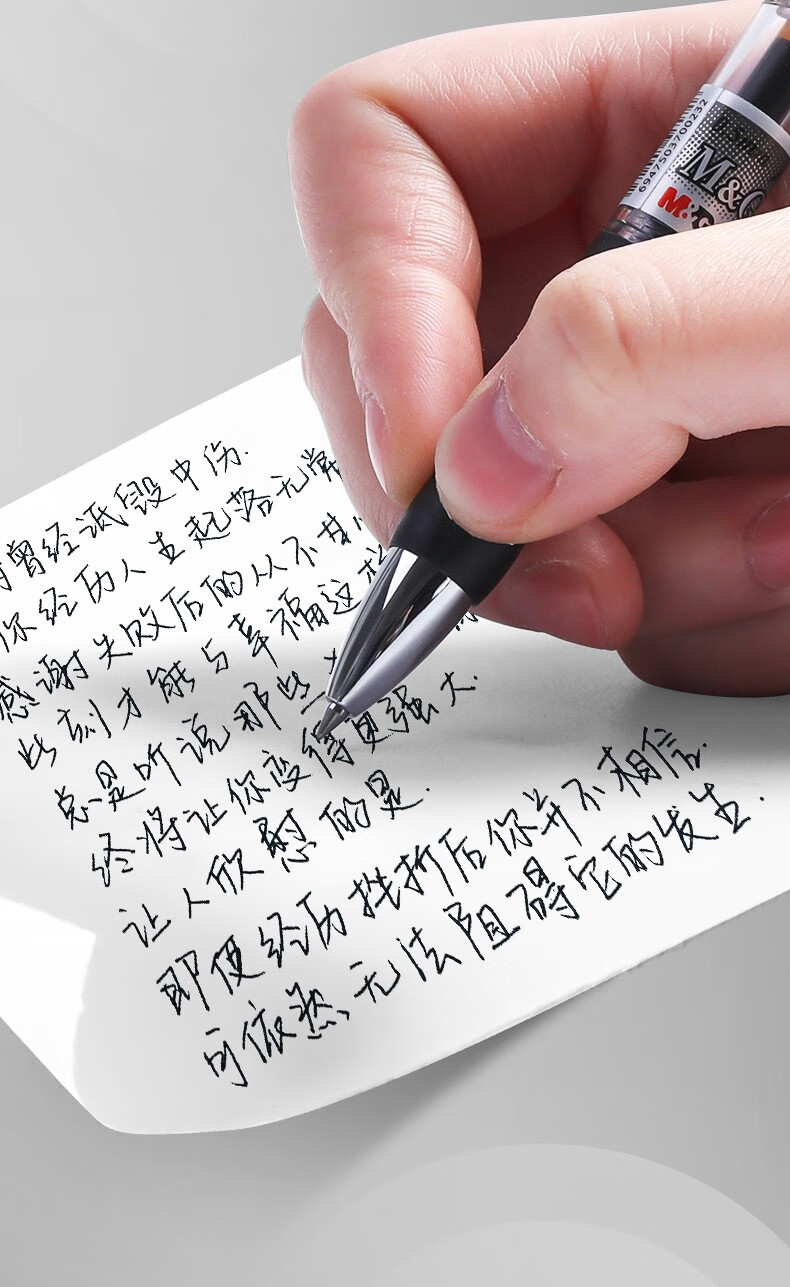 曾经诋毁中伤.
你经历人生起落无常
感谢失败后的从不其
此刻才能与幸福这
总是听说那些
终将让你变得更强大.
让人欣慰的是.
即便经历挫折后你并不相信.
可依然无法阻碍它的发生.
6947503700232
M&G
M&G